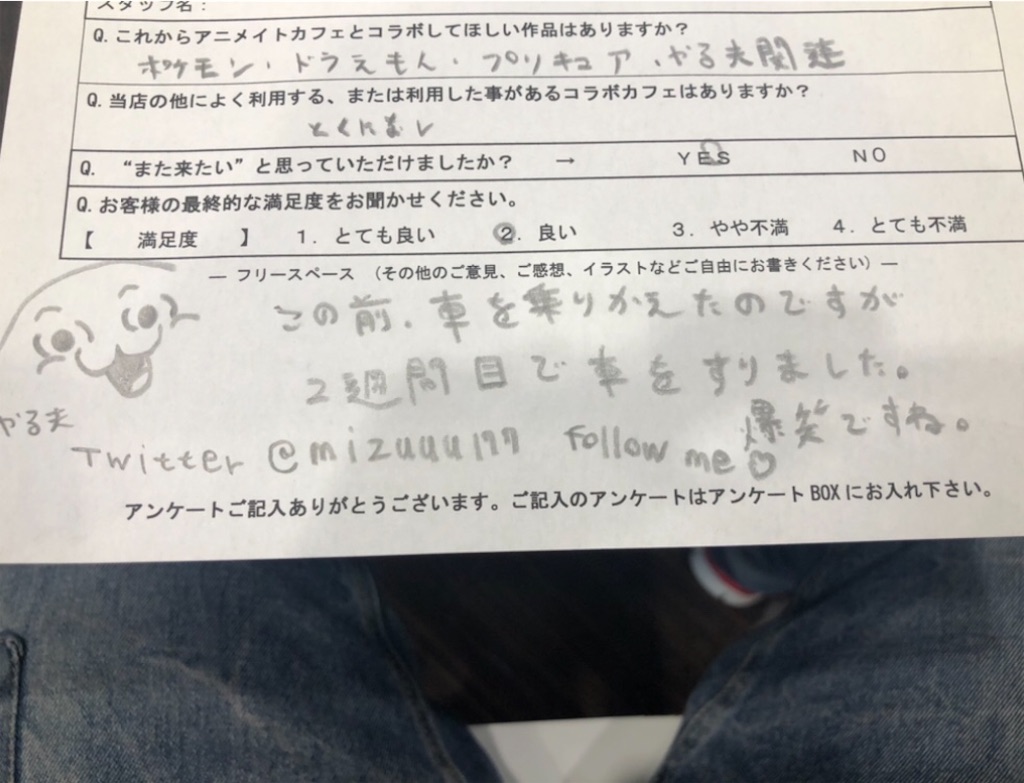 スタッフ名：
Q. これからアニメイトカフェとコラボしてほしい作品はありますか？
ポケモン・ドラえもん・プリキュア・やる夫関連
Q. 当店の他によく利用する、または利用した事があるコラボカフェはありますか？
とくになし
Q. “また来たい”と思っていただけましたか？ → YES NO
Q. お客様の最終的な満足度をお聞かせください。
【 満足度 】 1. とても良い 2. 良い 3. やや不満 4. とても不満
― フリースペース （その他のご意見、ご感想、イラストなどご自由にお書きください）―
この前、車を乗りかえたのですが
2週間目で車をすりました。
爆笑ですね。
やる夫
Twitter @mizuuu177 Follow me♡
アンケートご記入ありがとうございます。ご記入のアンケートはアンケートBOXにお入れ下さい。